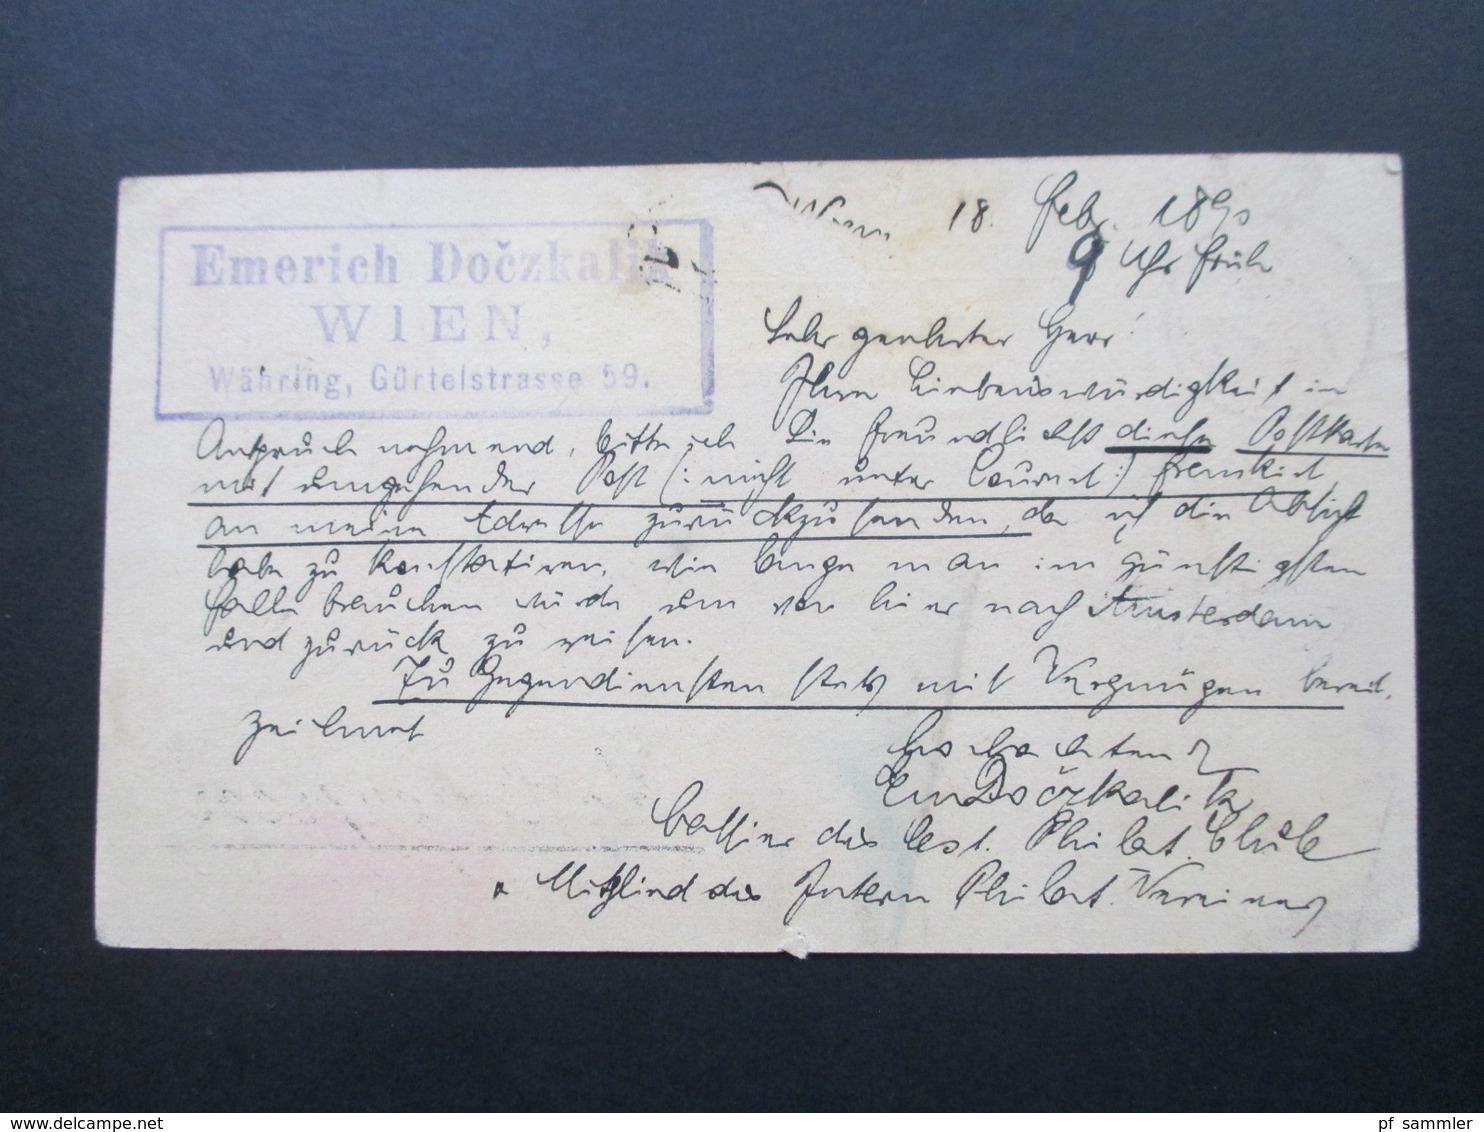 Emerich Dočzkalik
WIEN,
Währing, Gürtelstrasse 59.
Wien 18. Febr. 1890
9 Uhr früh
Sehr geehrter Herr!
Ihre Liebenswürdigkeit in
Anspruch nehmend, bitte ich Sie freundlichst diese Postkarte
mit umgehender Post (: nicht unter Couvert :) frankirt
an meine Adresse zurückzusenden, da ich die Absicht
habe zu konstatiren, wie lange man im günstigsten
Falle brauchen würde um von hier nach Amsterdam
und zurück zu reisen.
Zu Gegendiensten stets mit Vergnügen bereit,
zeichnet
hochachtend
Em Dočzkalik
Cassier des Oest. Philat. Club
Mitglied des Intern Philat. Vereines
pf_sammler